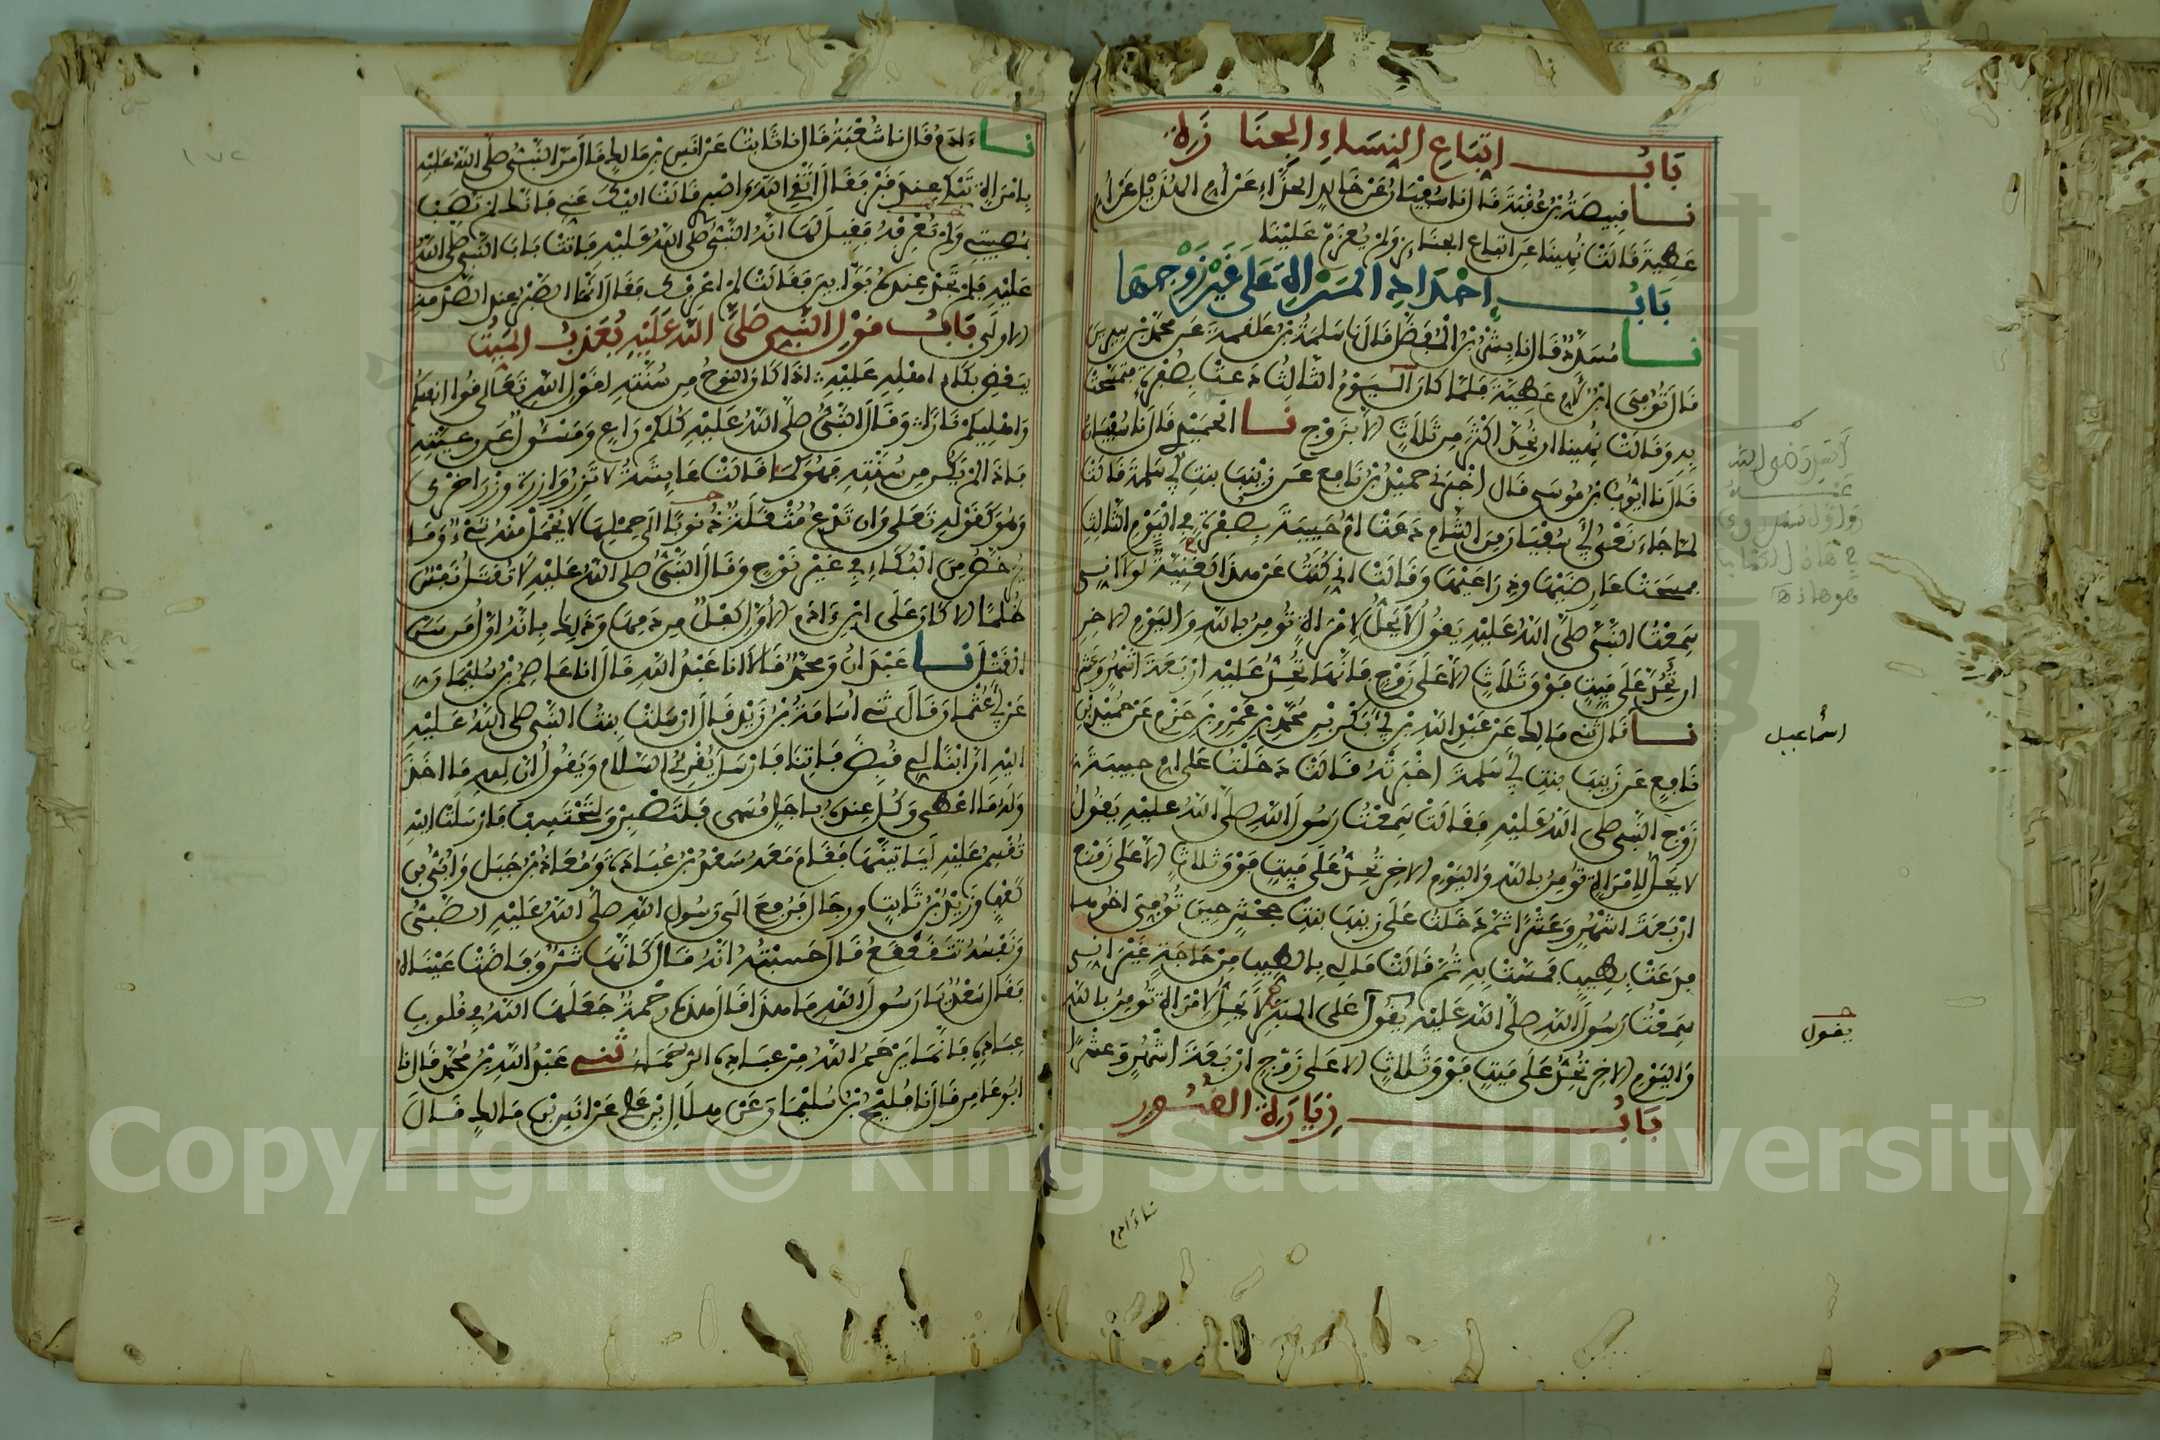 بَابُ اتباع النساء الجنازة
نا قبيصة بن عقبة قال نا سفيان عن خالد الحذاء عن أم الهذيل عن أم
عطية قالت نهينا عن اتباع الجنائز ولم يعزم علينا
باب إحداد المرأة على غير زوجها
نا مسدد قال نا بشر بن المفضل قال نا سلمة بن علقمة عن محمد بن سيرين
قال توفي ابن لأم عطية فلما كان اليوم الثالث دعت بصفرة فتمسحت
به وقالت نهينا ان نحد اكثر من ثلاث الا بزوج نا الحميدي قال نا سفيان
قال نا ايوب بن موسى قال اخبرني حميد بن نافع عن زينب بنت أبي سلمة قالت
لما جاء نعي أبي سفيان من الشام دعت ام حبيبة بصفرة في اليوم الثالث
فمسحت عارضيها وذراعيها وقالت اني كنت عن هذا لغنية لولا اني
سمعت النبي صلى الله عليه يقول لا يحل لامرأة تومن بالله واليوم الاخر
ان تحد على ميت فوق ثلاث الا على زوج فانها تحد عليه اربعة اشهر وعشرا
نا قال ثني مالك عن عبد الله بن أبي بكر بن محمد بن عمرو بن حزم عن حميد بن
نافع عن زينب بنت أبي سلمة اخبرته قالت دخلت على ام حبيبة
زوج النبي صلى الله عليه فقالت سمعت رسول الله صلى الله عليه يقول
لا يحل لامرأة تومن بالله واليوم الاخر تحد على ميت فوق ثلاث الا على زوج
اربعة اشهر وعشرا ثم دخلت على زينب بنت جحش حين توفي اخوها
فدعت بطيب فمست به ثم قالت ما لي بالطيب من حاجة غير اني
سمعت رسول الله صلى الله عليه يقول على المنبر لا يحل لامرأة تومن بالله
واليوم الاخر تحد على ميت فوق ثلاث الا على زوج اربعة اشهر وعشرا
باب زيارة القبور
اسماعيل
يقول
نا ءادم
نا ءادم قال نا شعبة قال نا ثابت عن انس بن مالك قال مر النبي صلى الله عليه
بامرأة تبكي عند قبر فقال اتقي الله واصبري قالت اليك عني فانك لم تصب
بمصيبتي ولم تعرفه فقيل لها انه النبي صلى الله عليه فاتت باب النبي صلى الله
عليه فلم تجد عنده بوابين فقالت لم اعرفك فقال انما الصبر عند الصدمة
الاولى باب قول النبي صلى الله عليه يعذب الميت
ببعض بكاء اهله عليه اذا كان النوح من سنته لقول الله تعالى قوا انفسكم
واهليكم نارا وقال النبي صلى الله عليه كلكم راع ومسئول عن رعيته
فاذا لم يكن من سنته فهو كما قالت عايشة لا تزر وازرة وزر اخرى
وهو كقوله تعلى وان تدع مثقلة ذنوبا الى حملها لا يحمل منه شيء وما
يرخص من البكاء في غير نوح وقال النبي صلى الله عليه لا تقتل نفس
ظلما الا كان على ابن ءادم الاول كفل من دمها وذلك بانه اول من سن
القتل نا عبدان ومحمد قالا نا عبد الله قال انا عاصم بن سليمان
عن أبي عثمان قال ثني اسامة بن زيد قال ارسلت بنت النبي صلى الله عليه
اليه ان ابنا لي قبض فاتنا فارسل يقرئ السلام ويقول ان لله ما اخذ
وله ما اعطى وكل عنده باجل مسمى فلتصبر ولتحتسب فارسلت اليه
تقسم عليه ليأتينها فقام معه سعد بن عبادة ومعاذ بن جبل وابي بن
كعب وزيد بن ثابت ورجال فرفع الى رسول الله صلى الله عليه الصبي
ونفسه تتقعقع قال حسبته انه قال كانها شن وفاضت عيناه
فقال سعد يا رسول الله ما هذا قال هذه رحمة جعلها الله في قلوب
عباده فانما يرحم الله من عباده الرحماء ثني عبد الله بن محمد قال نا
ابو عامر قال نا فليح بن سليمان عن هلال بن علي عن انس بن مالك قال
Copyright © King Saud University